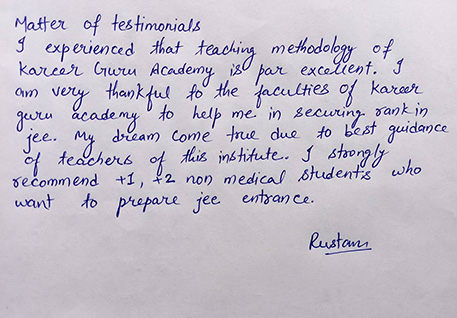 Matter of testimonials
I experienced that teaching methodology of
Kareer Guru Academy is par excellent. I
am very thankful to the faculties of Kareer
guru academy to help me in securing rank in
jee. My dream come true due to best guidance
of teachers of this institute. I strongly
recommend +1, +2 non medical students who
want to prepare jee entrance.
Rustam